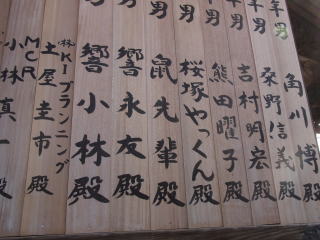 年男 角川 博 殿
年男 桑野信義 殿
年男 吉村明宏 殿
年男 熊田曜子 殿
年男 桜塚やっくん 殿
男 鼠先輩 殿
男 響 永友 殿
男 響 小林 殿
㈱K-1プランニング
土屋圭市 殿
MCR
小林真一 殿